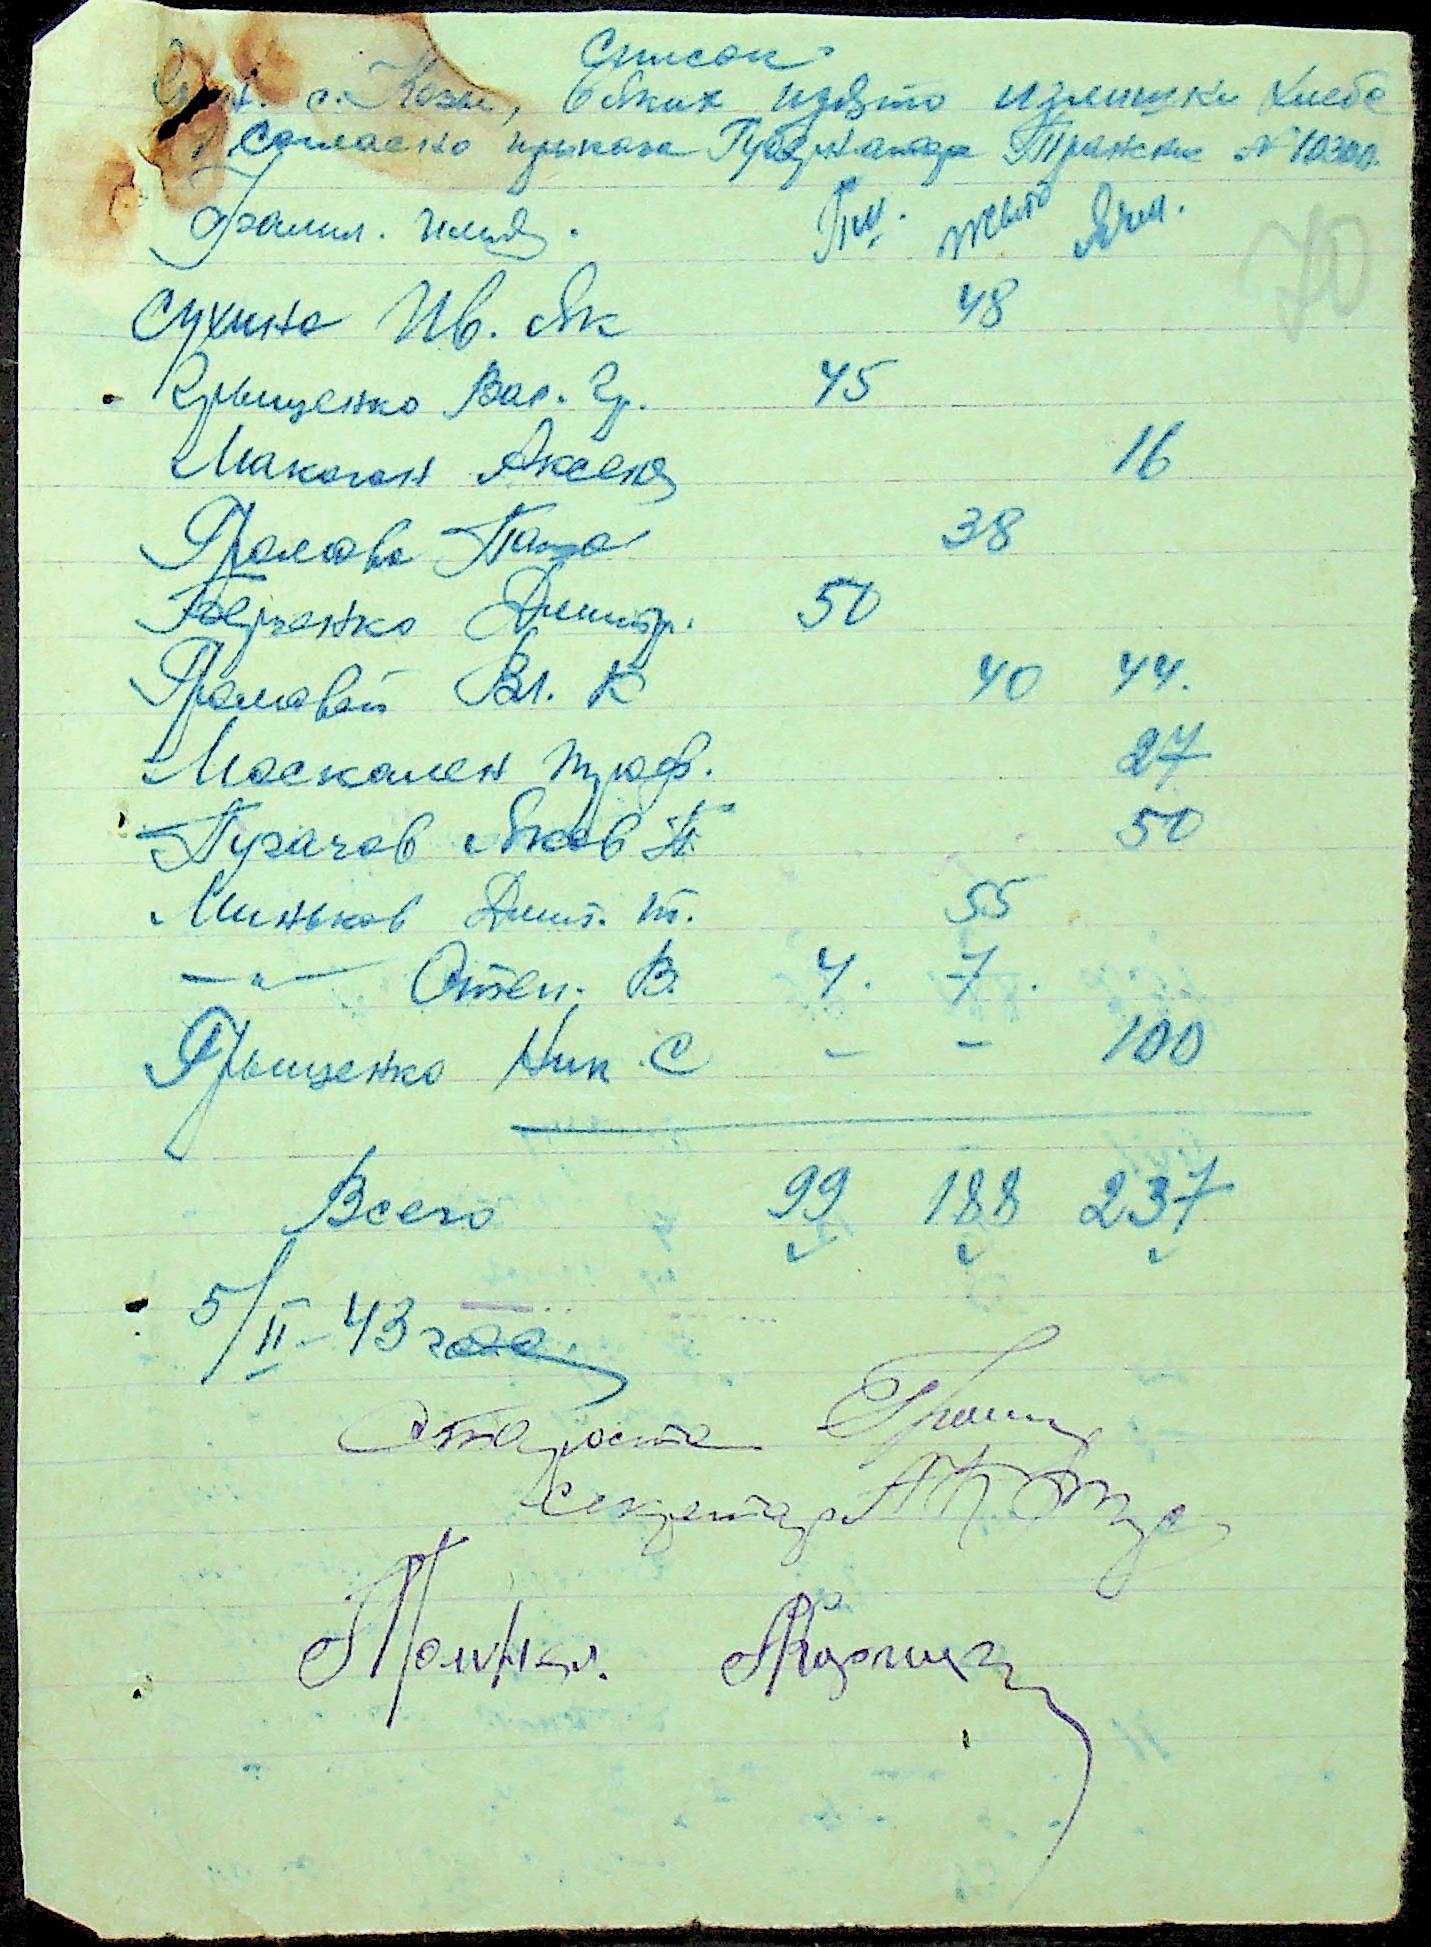 Список
с. Козы, в яких изято излишки хлеба
Согласно приказа Губернатора Транскис № 10300.
Фамил. имя. Пш. жыто Ячм.
Сухина Ив. Як 48
Грыщенко Вас. Гр. 45
Макогон Аксеня 16
Громова Паша 38
Берченко Дмитр. 50
Громовой Вл. К 40 44.
Москален Троф. 27
Пугачов Яков П. 50
Миньков Дмит. т. 55
— " — Степ. В. 4. 7.
Грыщенко Ник. С - - 100
Всего 99 188 237
5/II-43 года
Староста
Секретарь
70